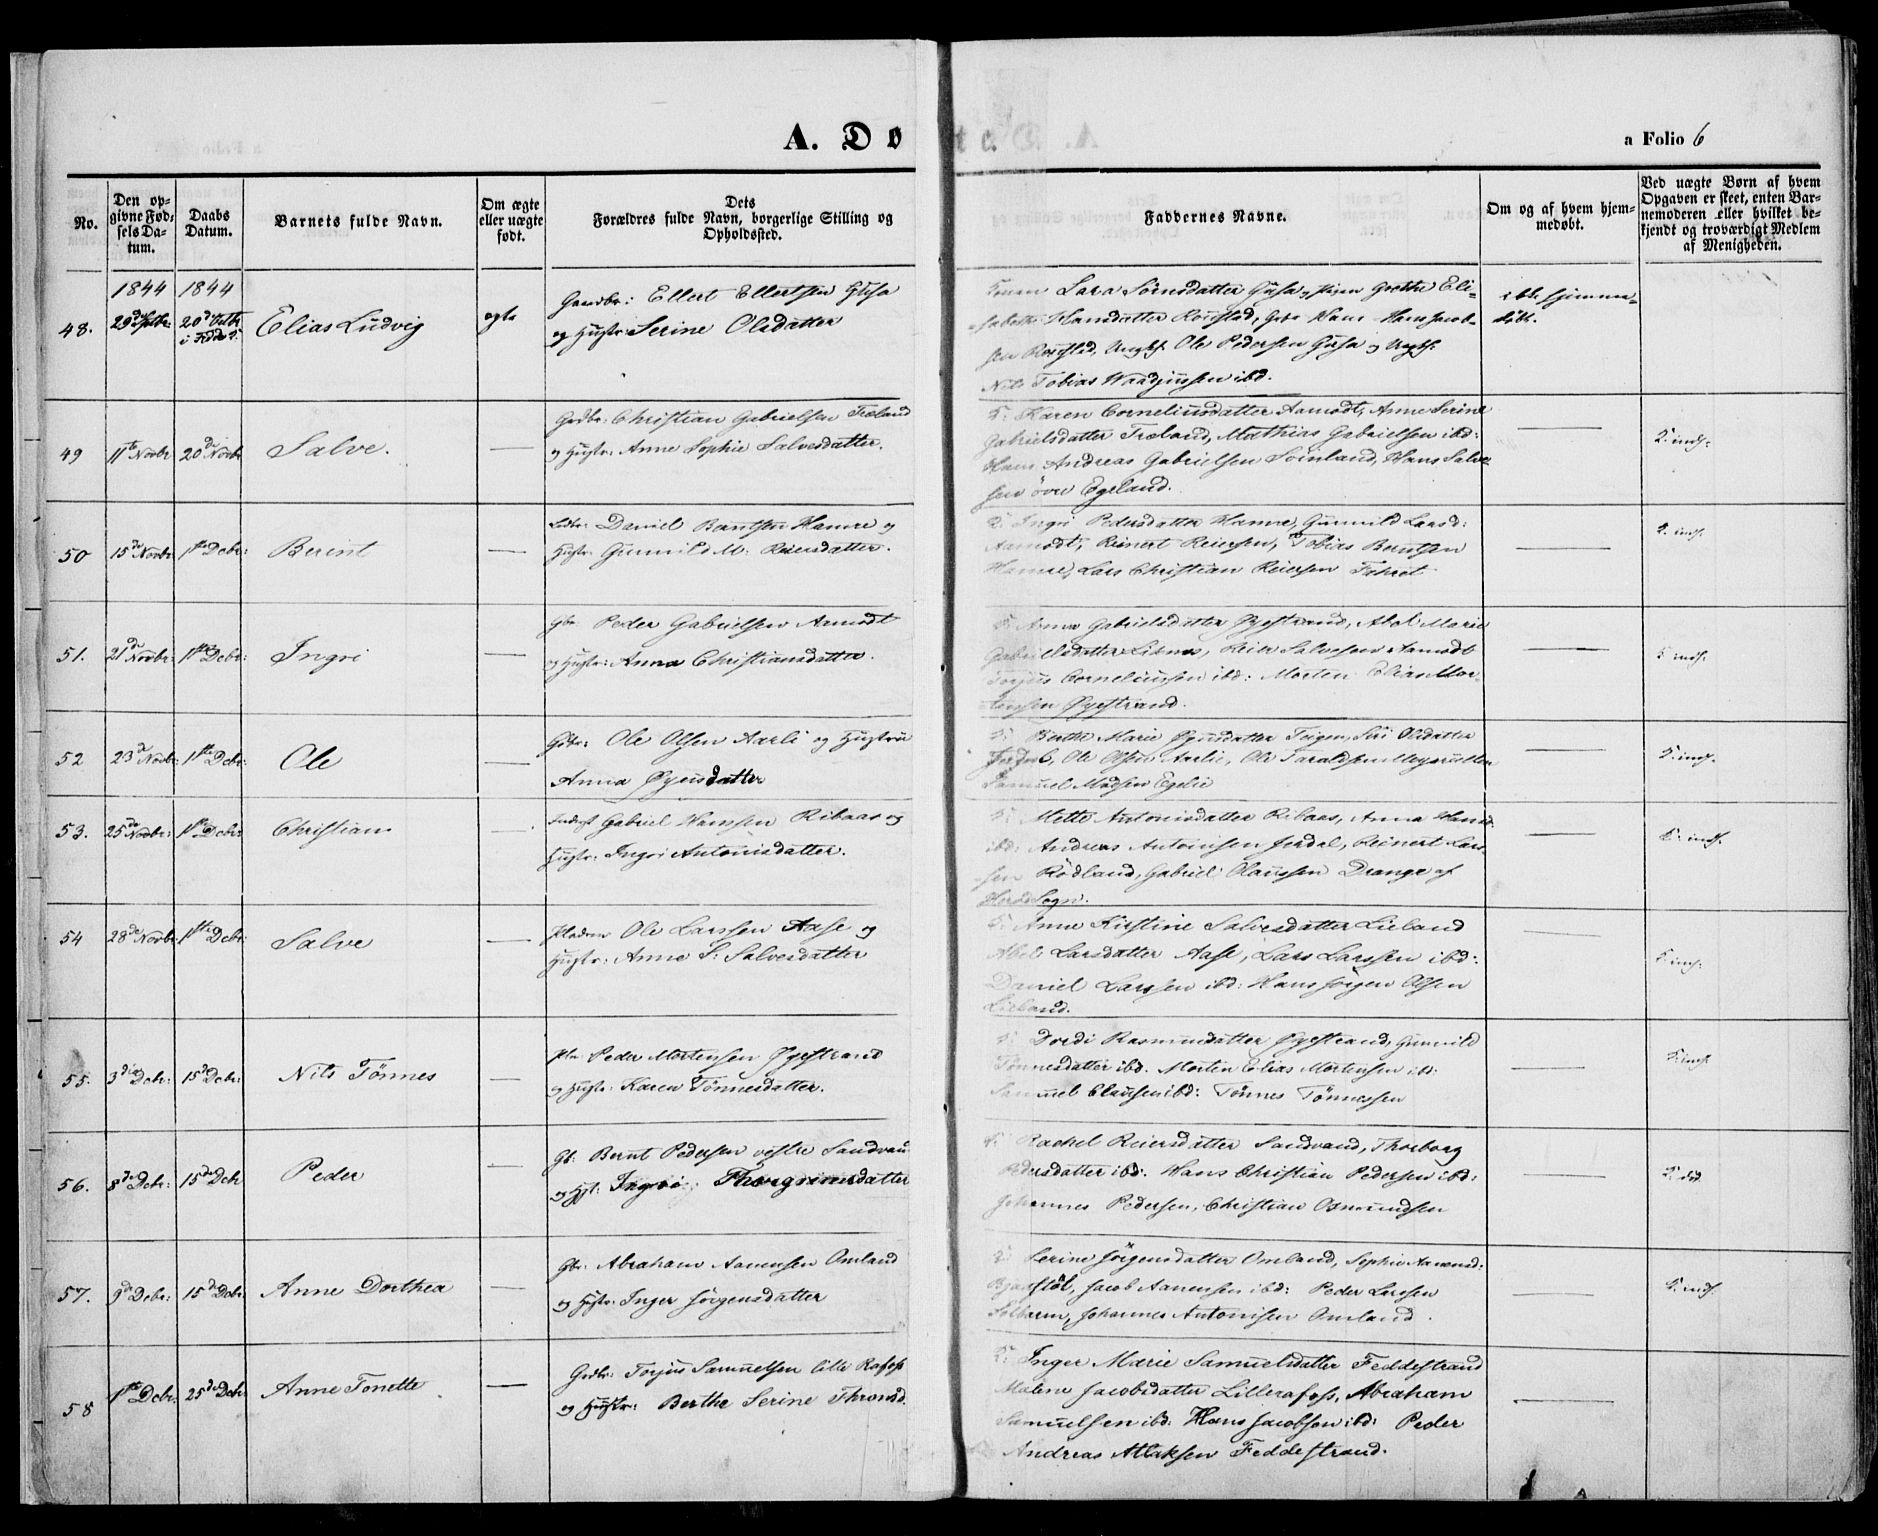 A. Dø
a Folio 6
No.
Den op-
givne Fød-
sels Da-
tum.
Daabs
Datum.
Barnets fulde Navn.
Om ægte
eller uægte
født.
Dets
Forældres fulde Navn, borgerlige Stilling og
Opholdssted.
Faddernes Navne.
Om og af hvem hjem-
medøbt.
Ved uægte Børn af hvem
Opgaven er skeet, enten Bar-
nemoderen eller hvilket be-
kjendt og troværdigt Medlem
af Menigheden.
1844 1844
48. Elias Ludvig ægte
Gaardbr: Ellert Ellertsen Gusa
og Hustr: Serine Olsdatter
Konen Lara Sörnsdatter Gusa Grethe Eli-
sabeth Hansdatter Hans Hansjacob-
sen Ungk. Ole Pedersen Gusa og Ungk:
Nils Tobias ibd.
ikke hjemme-
döbt.
49 11te Novbr 20de Novbr Salve.
Grdbr: Christian Gabrielsen Træland
og Hustr: Anne Sophie Salvesdatter.
K: Karen Corneliusdatter Aamodt, Anne Serine
Gabrielsdatter Træland, Mathias Gabrielsen ibd:
Hans Andreas Gabrielsen Soinland, Hans Salve-
sen övre Egeland.
K: inds.
50 15de Novbr 1ste Debr: Berint
Daniel Berntsen Hamre og
Hustr: Gunnild M: Reiersdatter.
K: Ingri Pedersdatter Hamre, Gunnild Larsd:
Aamodt, Reinert Reiersen, Tobias Berntsen
Hamre, Lars Christian Reiersen
K. inds.
51. 21de Novbr: 1ste Debr: Ingri
Gbr: Peder Gabrielsen Aamodt
og Hustr: Anna Christiansdatter.
K: Anna Gabrielsdatter Øyestrand, Abel Marie
Gabrielsdatter Reier Salvesen Aamodt
Torjus Corneliussen ibd: Morten Elias Mor-
tensen Øyestrand.
K inds.
52 23de Novbr: 1ste Debr: Ole
Gdbr: Ole Olsen Aarli og Hustrue
Anna Øyensdatter
K: Berthe Marie Øyensdatter Teigen, Siri Olsdatter
Ole Olsen Aarlie, Ole Taraldsen
Samuel Madsen Egelie
K: inds.
53. 25de Novbr: 1ste Debr Christian
Inderst Gabriel Hanssen Ribaas og
Hustr: Ingri Antonisdatter.
K: Mette Antonisdatter Ribaas, Anna Hansd.
ibd: Andreas Antonisen Jerdal, Reinert Lars-
sen Rödland, Gabriel Olaussen Drange af
Herads Sogn.
K: inds.
54 28de Novbr 1ste Debr: Salve
Pladsm Ole Larssen Aase og
Hustr: Anne S: Salvesdatter
K: Anne Kirstine Salvesdatter Lieland
Abel Larsdatter Aase, Lars Larssen ibd:
Daniel Larssen ibd: Hans Jörgen Olsen
Lieland.
K: inds:
55. 3die Debr: 15de Debr: Nils Tönnes
Peder Mortensen Øyestrand
og Hustr: Karen Tönnesdatter.
K: Dordi Rasmusdatter Øyestrand, Gunnild
Tönnesdatter ibd. Morten Elias Mortensen ibd:
Samuel Clausen ibd: Tönnes Tönnessen
K: inds.
56. 8de Debr: 15de Debr Peder
Gb: Bernt Pedersen vestre Sandvan
og Hst: Ingri Thorgrimsdatter
K: Rachel Reiersdatter Sandvand, Thorborg
Pedersdatter ibd: Hans Christian Pedersen ibd:
Johannes Pedersen, Christian Osmundsen
57. 9de Debr: 15de Debr Anne Dorthea
Gbr: Abraham Aanensen Omland
og Hustr: Inger Jörgensdatter
K: Serine Jörgensdatter Omland, Sophie Aanensd:
Jacob Aanensen ibd: Peder Larssen
Johannes Antonisen Omland.
K: inds.
58 1ste Debr: 25de Debr Anne Tonette
Grdbr: Torjus Samuelsen lille Rafoss
og Hustr: Berthe Serine Thronsd.
K: Inger Marie Samuelsdatter Feddestrand
Malene Jacobsdatter Lillerafoss, Abraham
Samuelsen ibd. Hans Jacobsen ibd: Peder
Andreas Atlaksen Feddestrand.